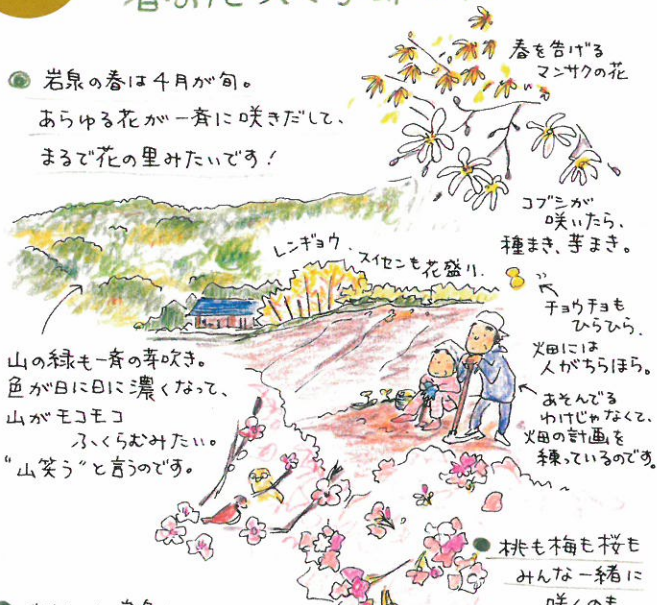 岩泉の春は4月が旬。
あらゆる花が一斉に咲きだして、
まるで花の里みたいです!
春を告げる
マンサクの花
コブシが
咲いたら、
種まき、芋まき。
レンギョウ、スイセンも花盛り。
チョウチョも
ひらひら。
畑には
人がちらほら。
あそんでる
わけじゃなくて、
畑の計画を
練っているのです。
山の緑も一斉の芽吹き。
色が日に日に濃くなって、
山がモコモコ
ふくらむみたい。
"山笑う"と言うのです。
桃も梅も桜も
みんな一緒に
咲くのも